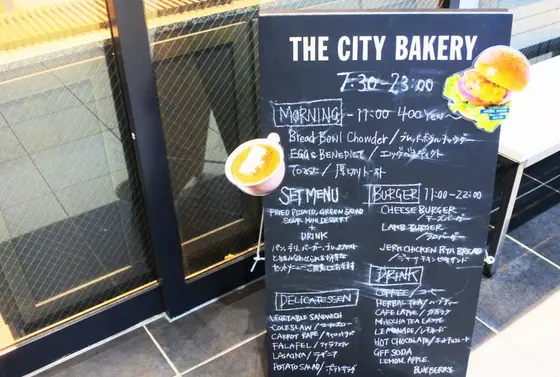 THE CITY BAKERY
7:30-23:00
MORNING -11:00 400YEN~
Bread Bowl Chowder / ブレッドボウルチャウダー
EGG & BENEDICT / エッグベネディクト
TOAST / 厚切りトースト
SET MENU
FRIED POTATO, GREEN SALAD
SOUP, MINI DESSERT
+
DRINK
パン、デリ、バーガー、ブレックファスト
BURGER 11:00-22:00
CHEESE BURGER
/ チーズバーガー
LAMB BURGER
/ ラムバーガー
JERK CHICKEN PITA BREAD
DELICATESSEN
VEGETABLE SANDWICH
COLESLAW / コールスロー
CARROT RAPE / キャロットラペ
FALAFEL / ファラフェル
LASAGNA / ラザニア
POTATO SALAD /
DRINK
COFFEE / コーヒー
HERBAL TEA / ハーブティー
CAFE LATTE / カフェラテ
MATCHA TEA LATTE
LEMONADE / レモネード
HOT CHOCOLATE / ホットチョコレート
GFF SODA
LEMON, APPLE,
BLUEBERRY